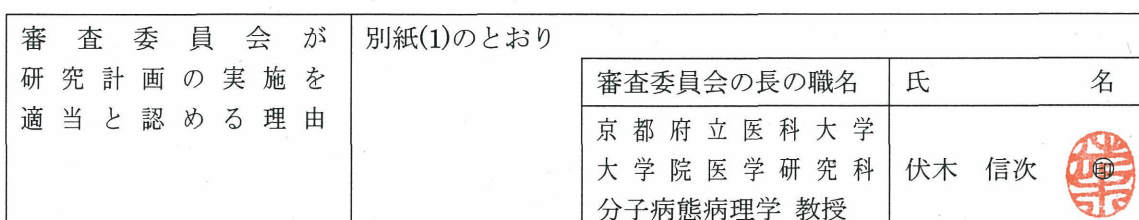 審査委員会が
研究計画の実施を
適当と認める理由
別紙(1)のとおり
審査委員会の長の職名
氏名
京都府立医科大学
大学院医学研究科
分子病態病理学 教授
伏木 信次
印